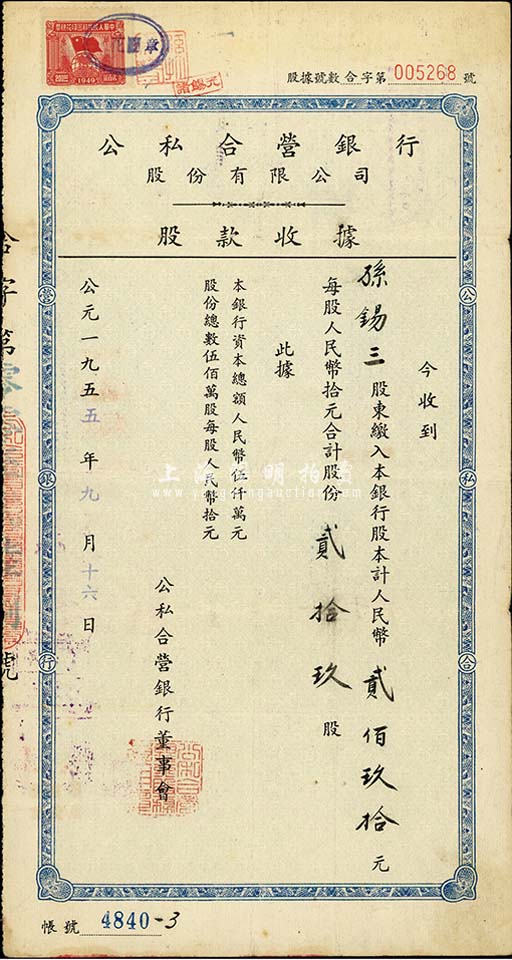 股據號數合字第005268號
1949
公私合營銀行
股份有限公司
股款收據
今收到
孫錫三股東繳入本銀行股本計人民幣貳佰玖拾元
每股人民幣拾元合計股份貳拾玖股
此據
本銀行資本總額人民幣伍仟萬元
股份總數伍佰萬股每股人民幣拾元
公私合營銀行董事會
公元一九五五年九月十六日
公
私
合
營
銀
行
帳號4840-3